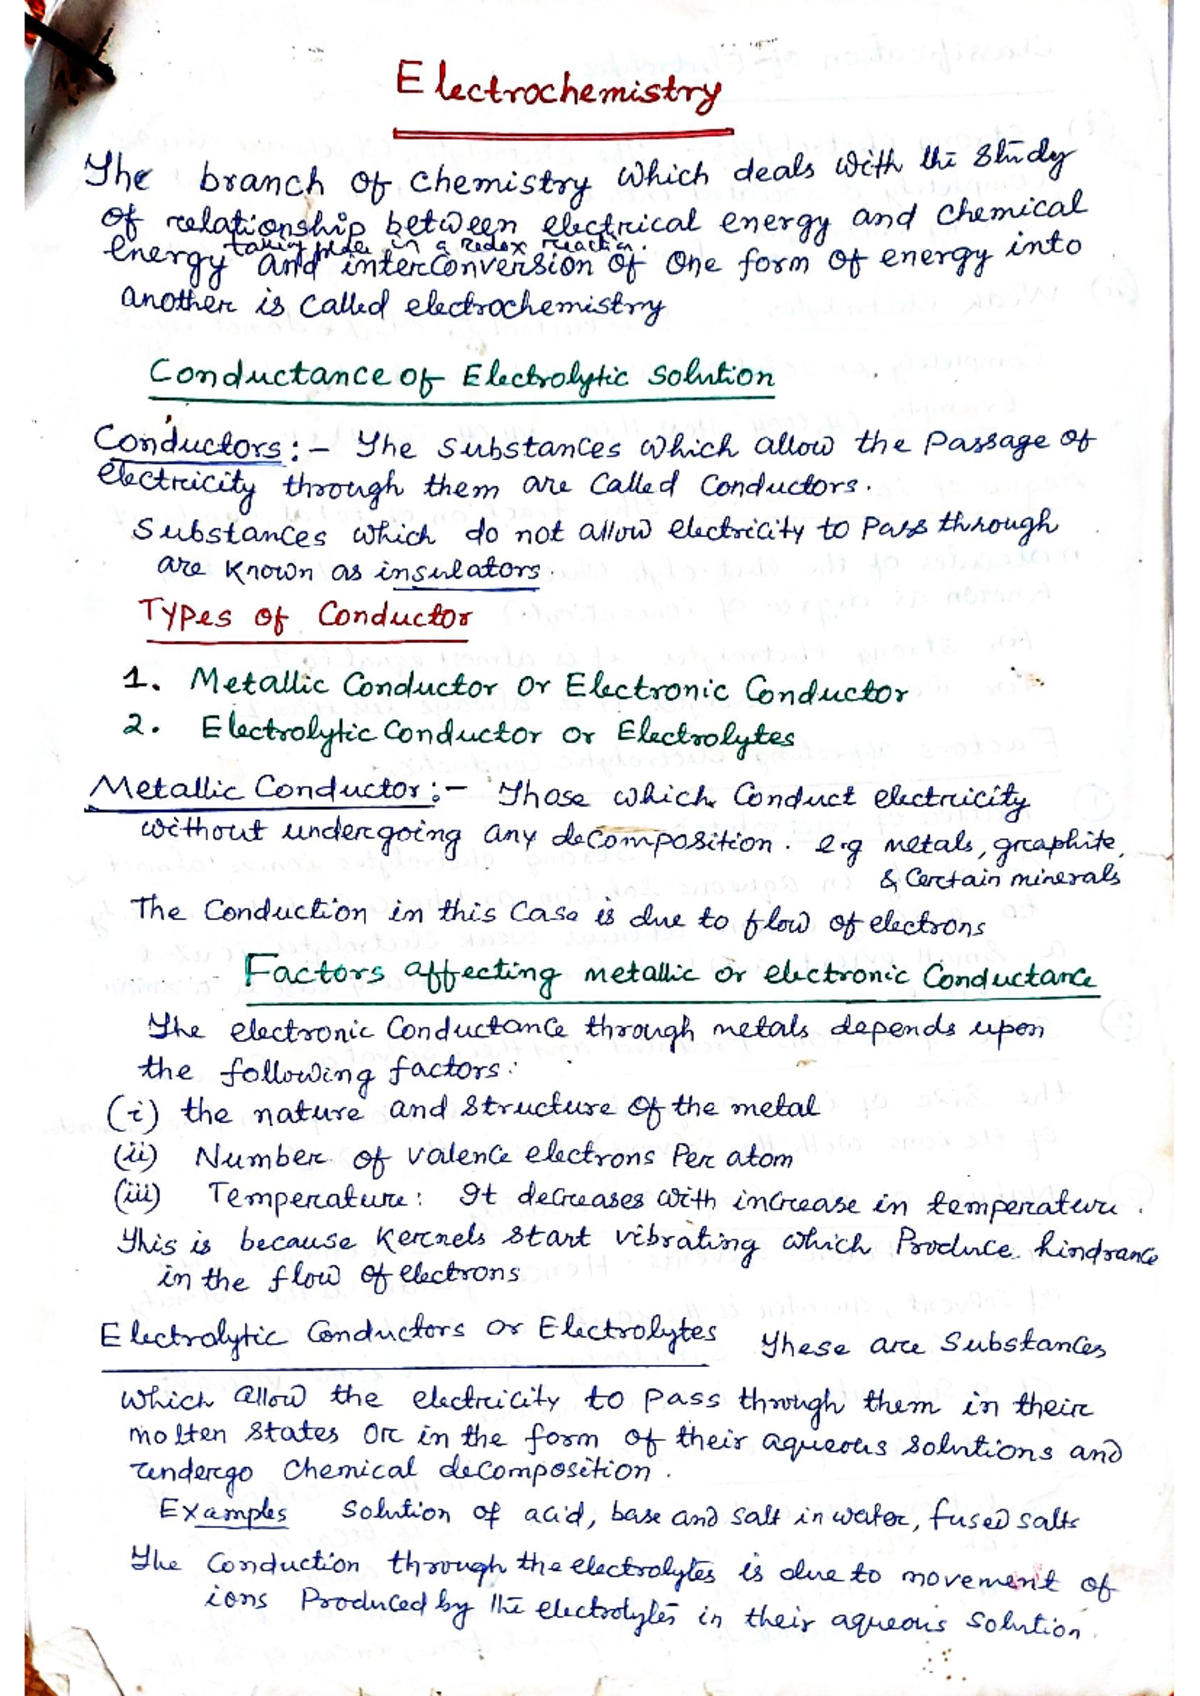 Electrochemistry
The branch of chemistry which deals with the study
of relationship between electrical energy and chemical
taking place in a redox reaction.
energy and interconversion of one form of energy into
another is called electrochemistry
Conductance of Electrolytic Solution
Conductors :- The substances which allow the passage of
electricity through them are called conductors.
Substances which do not allow electricity to pass through
are known as insulators.
Types of Conductor
1. Metallic Conductor or Electronic Conductor
2. Electrolytic Conductor or Electrolytes
Metallic Conductor :- Those which conduct electricity
without undergoing any decomposition. e.g metals, graphite,
& certain minerals
The conduction in this case is due to flow of electrons
Factors affecting metallic or electronic Conductance
The electronic conductance through metals depends upon
the following factors:
(i) the nature and structure of the metal
(ii) Number of valence electrons per atom
(iii) Temperature: It decreases with increase in temperature.
This is because kernels start vibrating which produce hindrance
in the flow of electrons
Electrolytic Conductors or Electrolytes These are substances
which allow the electricity to pass through them in their
molten states or in the form of their aqueous solutions and
undergo chemical decomposition.
Examples Solution of acid, base and salt in water, fused salts
The conduction through the electrolytes is due to movement of
ions produced by the electrolytes in their aqueous solution.